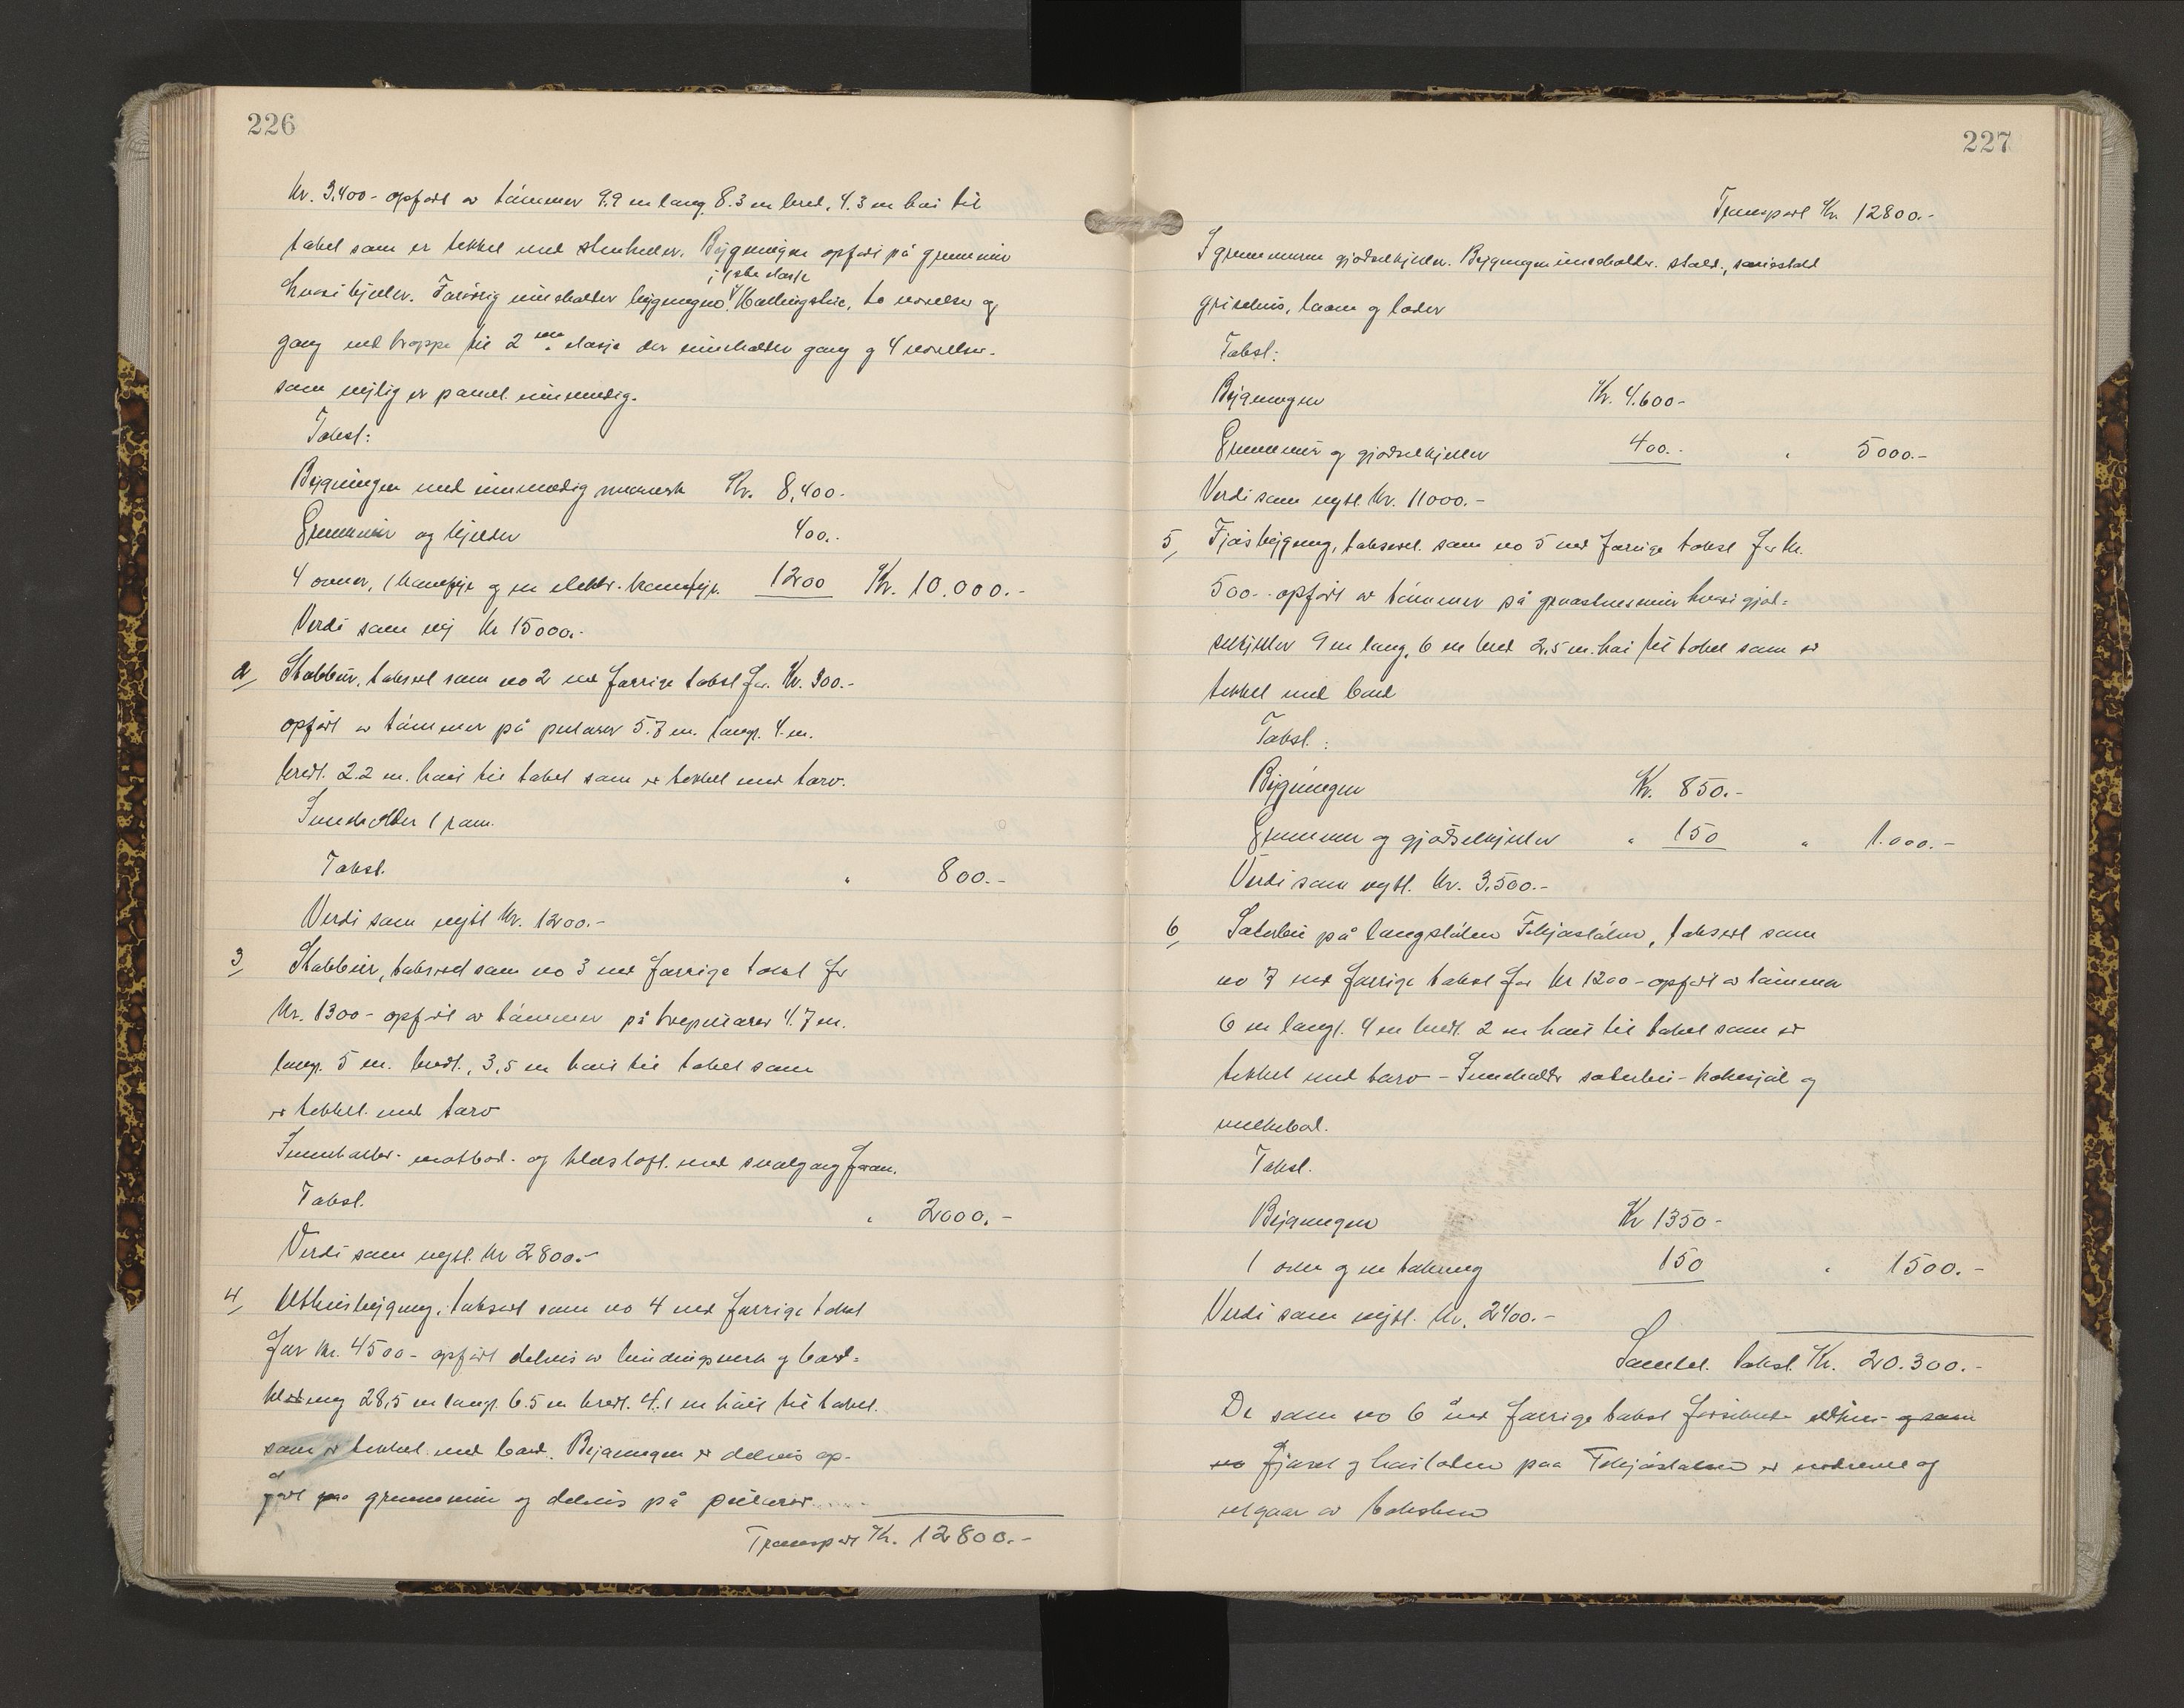 226
Kr. 3,400- opført av tømmer 9.9 m lang, 8.3 m bred, 4.3 m høi til
taket som er tekket med stenheller. Bygningen opført på grunnmur
i 1ste etasje
hvori kjeller. Forøvrig inneholder bygningen Hallingstue, to værelser og
gang med trappe til 2nen etasje der inneholder gang og 4 værelser.
som nylig er panelt innvendig.
Takst:
Bygningen med innvendig murverk Kr. 8,400.-
Grunnmur og kjelder 400.-
4 ovner, 1 komfyr og en elektr. komfyr. 1200 Kr. 10.000.-
Verdi som ny Kr 15000.-
2, Stabbur, taksert som no 2 ved forrige takst for Kr. 300.-
opført av tømmer på pilarer 5.7 m. langt. 4. m.
bredt. 2.2 m. høit til taket som er tekket med torv.
Inneholder 1 rom.
Takst. " 800.-
Verdi som nytt Kr. 1200.-
3, Stabbur, taksert som no 3 ved forrige takst for
Kr. 1300- opført av tømmer på trepilarer 4.7 m.
langt. 5 m. bredt., 3,5 m høit til taket som
er tekket med torv
Inneholder- matbod- og klesloft. med svalgang foran.
Takst. " 2000.-
Verdi som nytt. Kr 2800.-
4, Uthusbygning, taksert som no 4 ved forrige takst
for Kr. 4500- opført delvis av bindingsverk og bord=
kledning 28,5 m langt. 6.5 m bredt. 4.1 m høit til taket.
som er tekket med bord. Bygningen er delvis op-
ført paa grunnmur og delvis på pilarer.
Transport Kr. 12800.-
227
Transport Kr 12800.-
I grunnmuren gjødselkjeller. Bygningen inneholder. stald., sauestald
grisehus, laam og lader
Takst:
Bygningen Kr. 4.600-
Grunnmur og gjødselkjeller 400.- " 5000.-
Verdi som nytt. Kr. 11000.-
5, Fjøsbygning, taksert. som no 5 ved forrige takst for Kr.
500.- opført av tømmer på graastensmur hvori gjød=
selkjeller 9 m lang, 6 m bred 2,5 m. høi til taket som er
tekket med bord
Takst:
Bygningen Kr. 850.-
Grunnmur og gjødselkjeller " 150 " 1.000.-
Verdi som nytt. Kr. 3,500.-
6, Sæterbu på Langstølen Tekjastølen, taksert som
no 7 ved forrige takst for Kr 1200- opført av tømmer
6 m langt. 4 m bredt. 2 m høit til taket som er
tekket med torv - Inneholder sæterbu- kokesjul og
melkebod.
Takst.
Bygningen Kr 1350-
1 ovn og en takning 150 " 1500.-
Verdi som nytt. Kr. 2400.-
Samlet. takst. Kr. 20.300.-
De som no 6 ved forrige takst forsikrede eldhus- og som
no fjøset og høiløden paa Tekjastølen er nedrevne og
utgaar av taksten